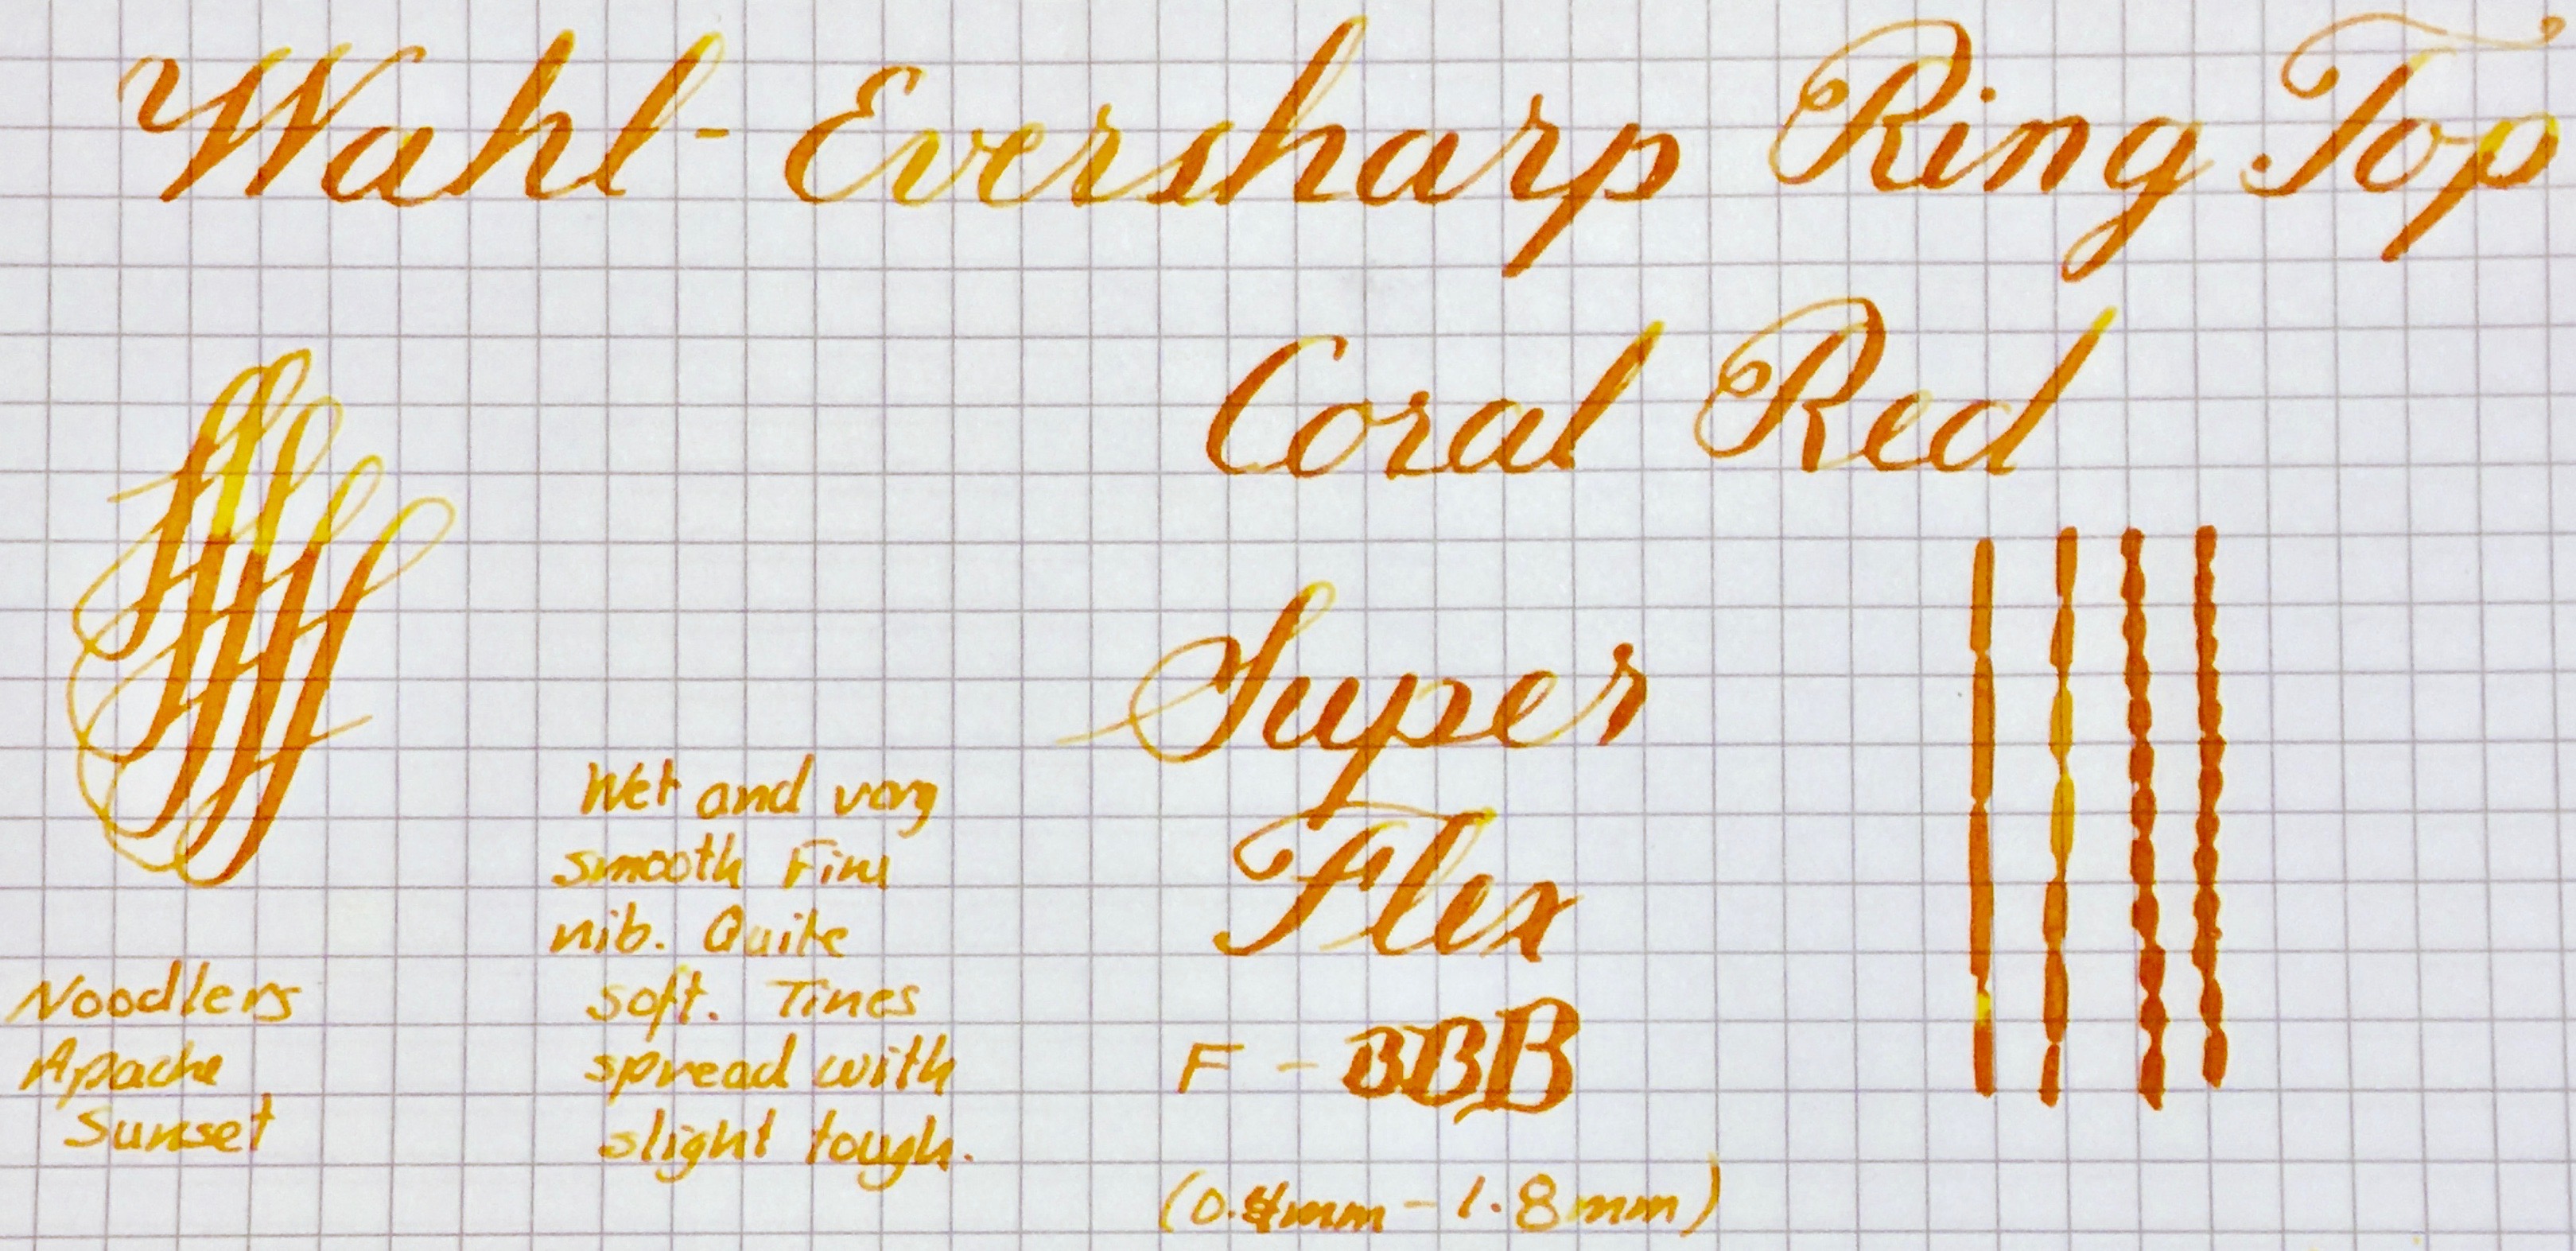 Wahl-Eversharp Ring Top
Coral Red
Super
Flex
F - BBB
(0.4mm - 1.8mm)
Wet and very
smooth Fine
nib. Quite
soft. Tines
spread with
slight tough.
Noodlers
Apache
Sunset